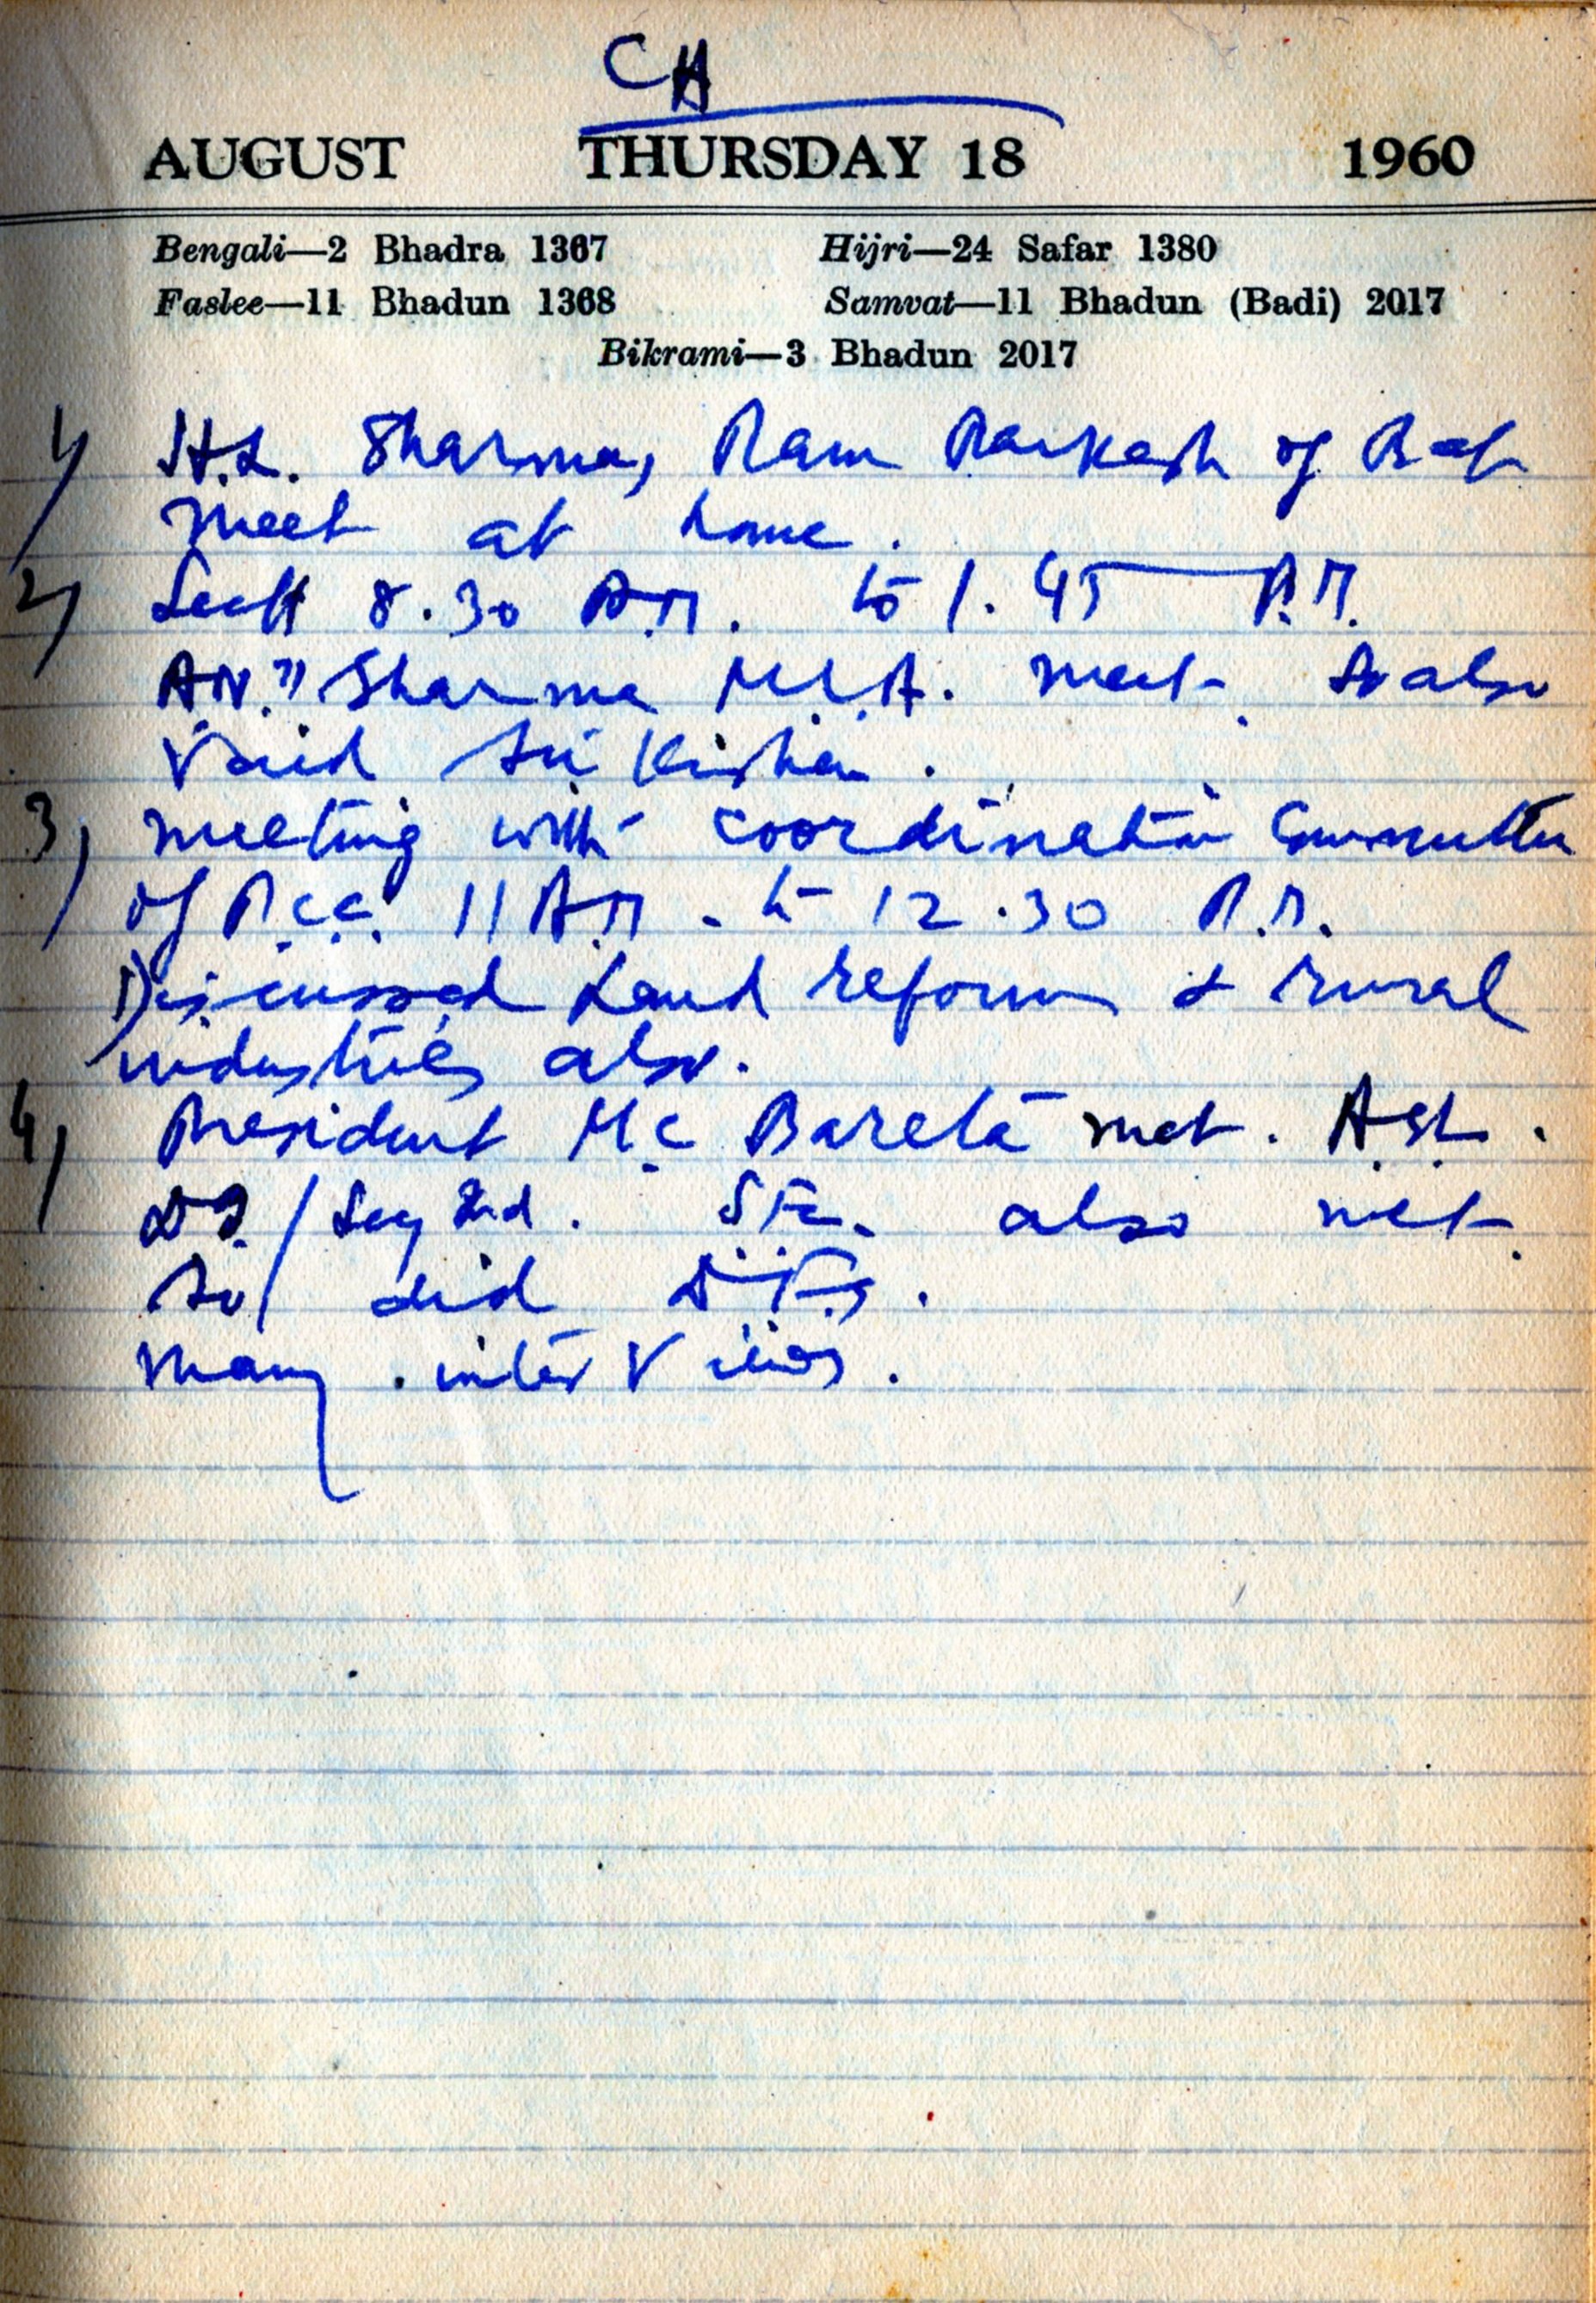 CH
AUGUST THURSDAY 18 1960
Bengali—2 Bhadra 1367 Hijri—24 Safar 1380
Faslee—11 Bhadun 1368 Samvat—11 Bhadun (Badi) 2017
Bikrami—3 Bhadun 2017
1) H.L. Sharma, Ram Parkash of
meet at home.
2) Sectt 8.30 A.M. to 1.45 P.M.
A.N. Sharma M.L.A. meet. So also
Vaid Sri Kishen.
3) Meeting with coordination Committee
of P.C.C. 11 A.M. to 12.30 P.M.
Discussed Land reforms & rural
industries also.
4) President M.C. Barela met.
also met.
So did
Many interviews.